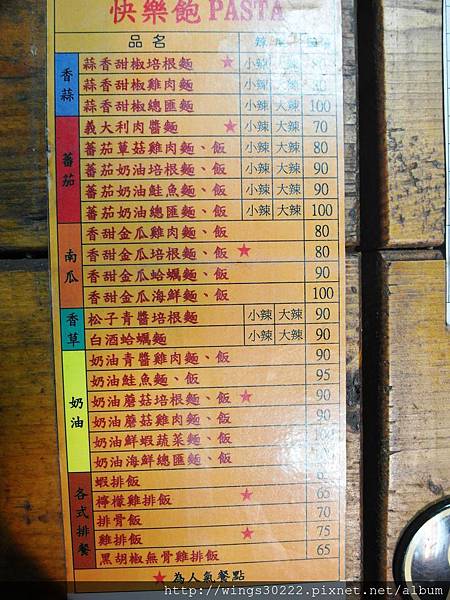 快樂飽 PASTA
品名 辣
香蒜
蒜香甜椒培根麵 ★ 小辣 大辣
蒜香甜椒雞肉麵 小辣 大辣
蒜香甜椒總匯麵 小辣 大辣 100
蕃茄
義大利肉醬麵 ★ 小辣 大辣 70
蕃茄草菇雞肉麵、飯 小辣 大辣 80
蕃茄奶油培根麵、飯 小辣 大辣 90
蕃茄奶油鮭魚麵、飯 小辣 大辣 90
蕃茄奶油總匯麵、飯 小辣 大辣 100
南瓜
香甜金瓜雞肉麵、飯 80
香甜金瓜培根麵、飯 ★ 80
香甜金瓜蛤蠣麵、飯 90
香甜金瓜海鮮麵、飯 100
香草
松子青醬培根麵 小辣 大辣 90
白酒蛤蠣麵 小辣 大辣 90
奶油
奶油青醬雞肉麵、飯 90
奶油鮭魚麵、飯 95
奶油蘑菇培根麵、飯 ★ 90
奶油蘑菇雞肉麵、飯 90
奶油鮮蝦蔬菜麵、飯 100
奶油海鮮總匯麵、飯
各式排餐
蝦排飯
檸檬雞排飯 ★ 65
排骨飯 70
雞排飯 ★ 75
黑胡椒無骨雞排飯 65
★ 為人氣餐點
http://wings30222.pixnet.net/album